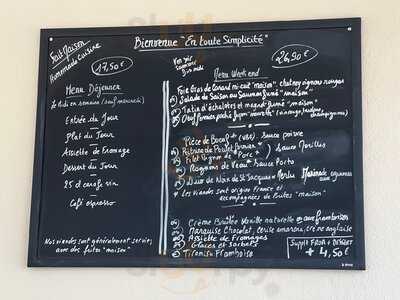 Bienvenue "En toute Simplicité"
Fait Maison
Homemade Cuisine
17,50€
Menu Déjeuner
Le Midi en semaine (sauf mercredi)
Entrée du Jour
Plat du Jour
Assiette de fromage
Dessert du Jour
25 cl carafe vin
Café expresso
Nos viandes sont généralement servies
avec des frites "maison"
26,90€
Ven soir
Menu Week end
Foie Gras de Canard mi-cuit "maison", chutney oignons rouges
ou Salade de Saison au Saumon fumé "maison"
ou Tatin d'échalotes et magret fumé "maison"
ou Oeuf
Pièce de Boeuf sauce poivre
sauce Morilles
ou Filet Mignon de Porc
ou Rognons de Veau sauce Porto
ou Duo de Noix de St Jacques et Merlu
Les viandes sont origine France et
accompagnées de frites "maison"
Crème Brulée Vanille naturelle ou aux framboises
ou Marquise Chocolat, crème anglaise
ou Assiette de Fromages
ou Glaces et sorbets
ou Tiramisu Framboise
Suppt FROM + DESSERT
+ 4,50€